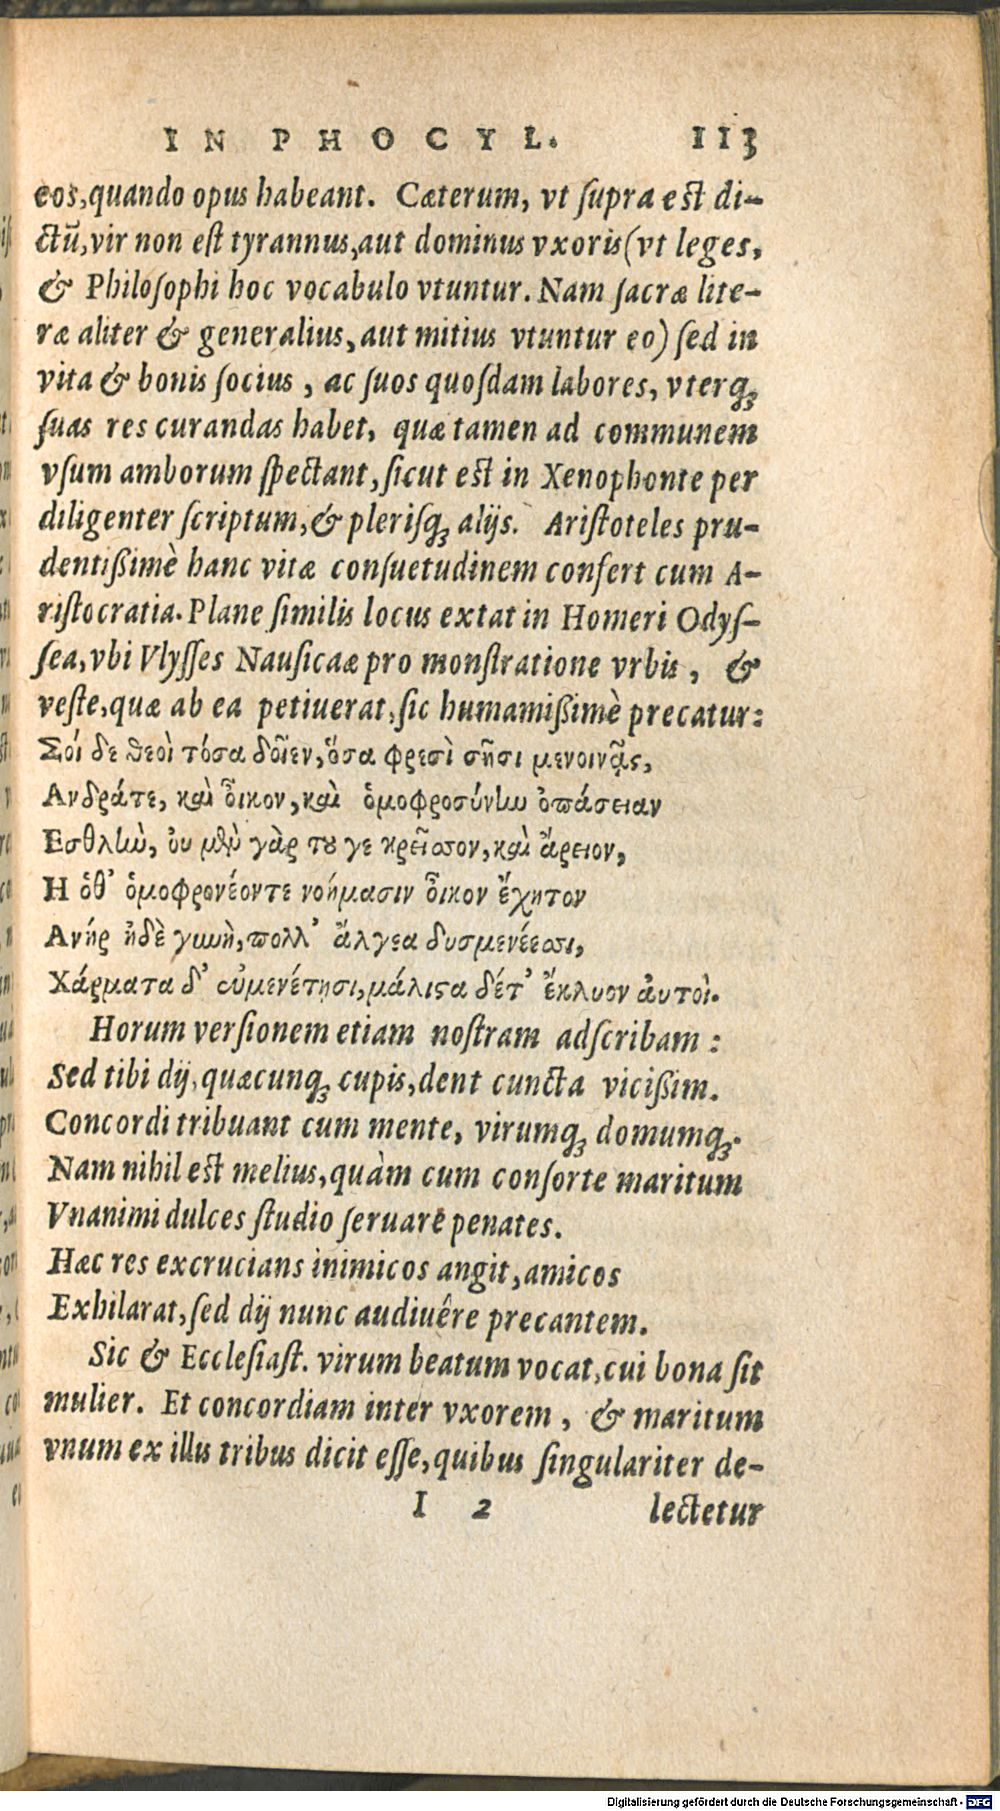 IN PHOCYL. 113
eos,quando opus habeant. Cæterum, vt ſupra est di-
ctũ,vir non eſt tyrannus,aut dominus vxoris(vt leges,
& Philoſophi hoc vocabulo vtuntur. Nam ſacræ lite-
ræ aliter & generalius,aut mitius vtuntur eo) ſed in
vita & bonis ſocius , ac ſuos quoſdam labores, vterq;
ſuas res curandas habet, quæ tamen ad communem
vſum amborum ſpectant,ſicut est in Xenophonte per
diligenter ſcriptum,& pleriſq; alijs. Ariſtoteles pru-
dentißimè hanc vitæ conſuetudinem confert cum A-
riſtocratia. Plane ſimilis locus extat in Homeri Odyſ-
ſea,vbi Vlyſſes Nauſicaæ pro monſtratione vrbis , &
veſte,quæ ab ea petiuerat,ſic humamißimè precatur:
Σοί δε θεοὶ τόσα δοῖεν,ὅσα φρεσὶ σῆσι μενοινᾷς,
Ανδράτε, καὶ οἶκον,καὶ ὁμοφροσύνην ὀπάσειαν
Εσθλὴν, ὀυ μὲν γὰρ του γε κρεῖσσον,καὶ ἄρειον,
Η ὁθ' ὁμοφρονέοντε νοήμασιν οἶκον ἔχητον
Ανήρ ἠδὲ γυνὴ,πολλ' ἄλγεα δυσμενέεσσι,
Χάρματα δ' εὐμενέτησι,μάλιϛα δέτ' ἔκλυον ἀυτοὶ.
Horum verſionem etiam noſtram adſcribam :
Sed tibi dij,quæcunq; cupis,dent cuncta vicißim.
Concordi tribuant cum mente, virumq; domumq;.
Nam nihil est melius,quàm cum conſorte maritum
Vnanimi dulces ſtudio ſeruare penates.
Hæc res excrucians inimicos angit,amicos
Exhilarat,ſed dij nunc audiuêre precantem.
Sic & Eccleſiaſt. virum beatum vocat,cui bona ſit
mulier. Et concordiam inter vxorem , & maritum
vnum ex illis tribus dicit eſſe,quibus ſingulariter de-
I 2 lectetur
Digitalisierung gefördert durch die Deutsche Forschungsgemeinschaft - DFG